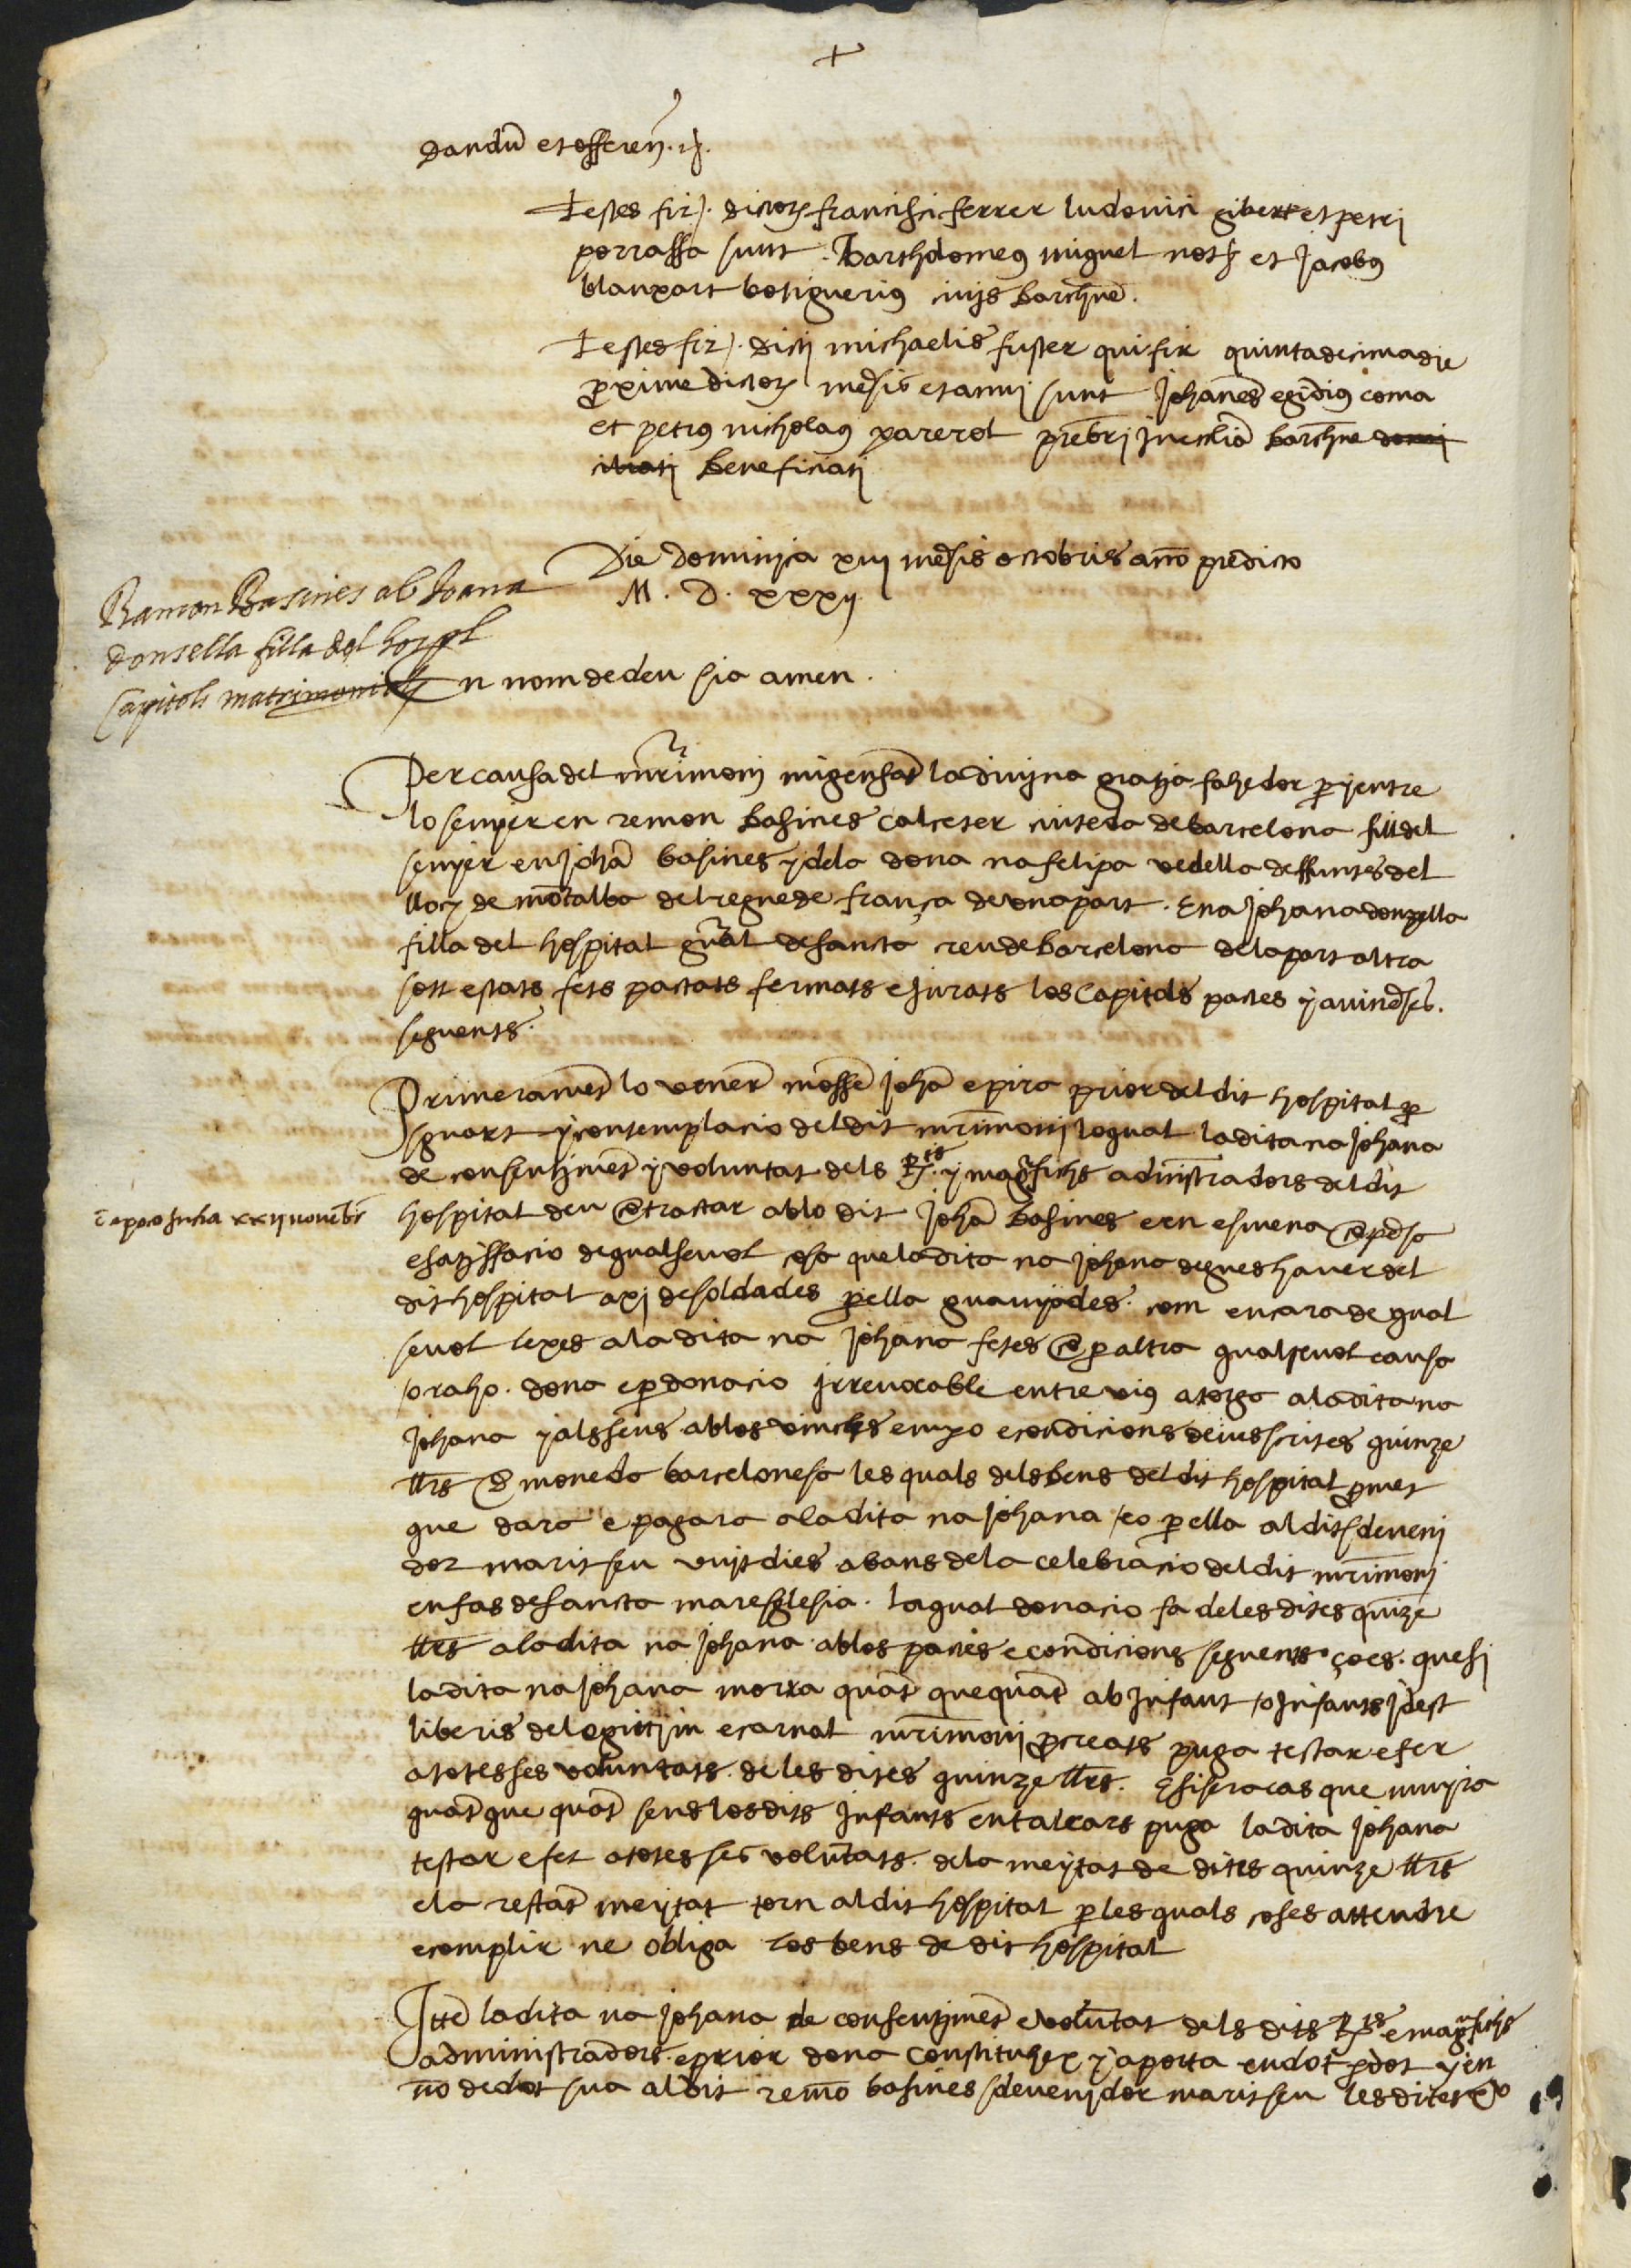 +
dandu et offeren. rȝ.
Testes fir. dictoȝ francisci ferrer ludovici gibert et petri
porrassa sunt Barthdomeꝰ miquel notȝ et Jacobꝰ
blanxart botigueriꝰ civis barchne.
Testes fir. dicti michaelis fuster qui fir quintadecima die
proxime dictoȝ mesis et anni sunt Johanes egidiꝰ coma
et petrꝰ nicholaꝰ parerol prebri in ecclia barchne domi
ciliati beneficiati
Die dominica xiij mesis octobris ano predicto
M. D. xxxij
Ramon Basines ab Joana
donsella filla del hospl
Capitols matrimonials
En nom de deu sia amen.
Per causa del mrimoni migensat la divina gratia fahedor p y entre
lo senyer en remon basines calceter ciuteda de barcelona fill del
senyer en Joha basines y dela dona na felipa vedella deffuntes del
lloch de motalba del regne de frança de una part. E na Johana donzella
filla del hospital gnal de sancta creu de barcelona dela part altra
son estats fets pactats fermats e jurats los Capitols pactes y avineses.
seguents.
Primerament lo vener mosse Joha epira prior del dit hospital p
sguart y contemplacio del dit mrimoni lo qual la dita na Johana
de consentimet y voluntat dels Rts. y magfichs administradors del dit
hospital deu contractar ab lo dit Joha basines e en esmena copesa
apoca fucha xxij novebr
e satisffacio de qualsevol cosa que la dita na Johana degues haver del
dit hospital axi de soldades p ella guanyades. com encara de qual
sevol lexes a la dita na Johana fetes e p altra qualsevol causa
o raho. dona e p donacio irrevocable entre vius atorga a la dita na
Johana y als seus ab los vincles empo e condicions deius scrites quinze
llrs de moneda barcelonesa les quals dels bens del dit hospital pmet
que dara e pagara a la dita na Johana o p ella al dit sdeveni
dor marit seu vuyt dies abans dela celebracio del dit mrimoni
en fas de sancta mare sglesia. la qual donacio fa de les dites quize
llrs a la dita na Johana ab los pactes e condicions seguents. ço es. que si
la dita na Johana morra quat que quat ab infant o infants idest
liberis de legittim e carnal mrimoni pcreats puga testar e fer
a totes ses voluntats. de les dites quinze llrs. E si sera cas que muyra
quat que quat sens los dits infants en tal cars puga la dita Johana
testar e fer a totes ses voluntats. de la meytat de dites quinze llrs
e la restat meytat torn al dit hospital p les quals coses attendre
e complir ne obliga los bens de dit hospital
Itte la dita na Johana de consentimet e voluntat dels dits Rts e magfichs
administradors. e prior dona constituhex y aporta en dot p dot y en
no de dot sua al dit remo basines sdevenidor marit seu les dites xv